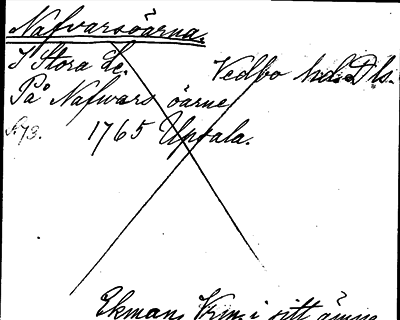 Nafvarsöarna.
I Stora Le. Vedbo hd. Dls.
På Nafwars öarne
N. 73. 1765 Upsala.
Ekman, i sitt ämne